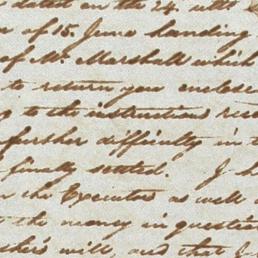 dated on the 24. ult.
of 15. June handing
of Mr. Marshall which
to return you enclose
to the instructions rec
further difficulty in t
finally settled. I h
the Executor as well
the money in question
will, and that I